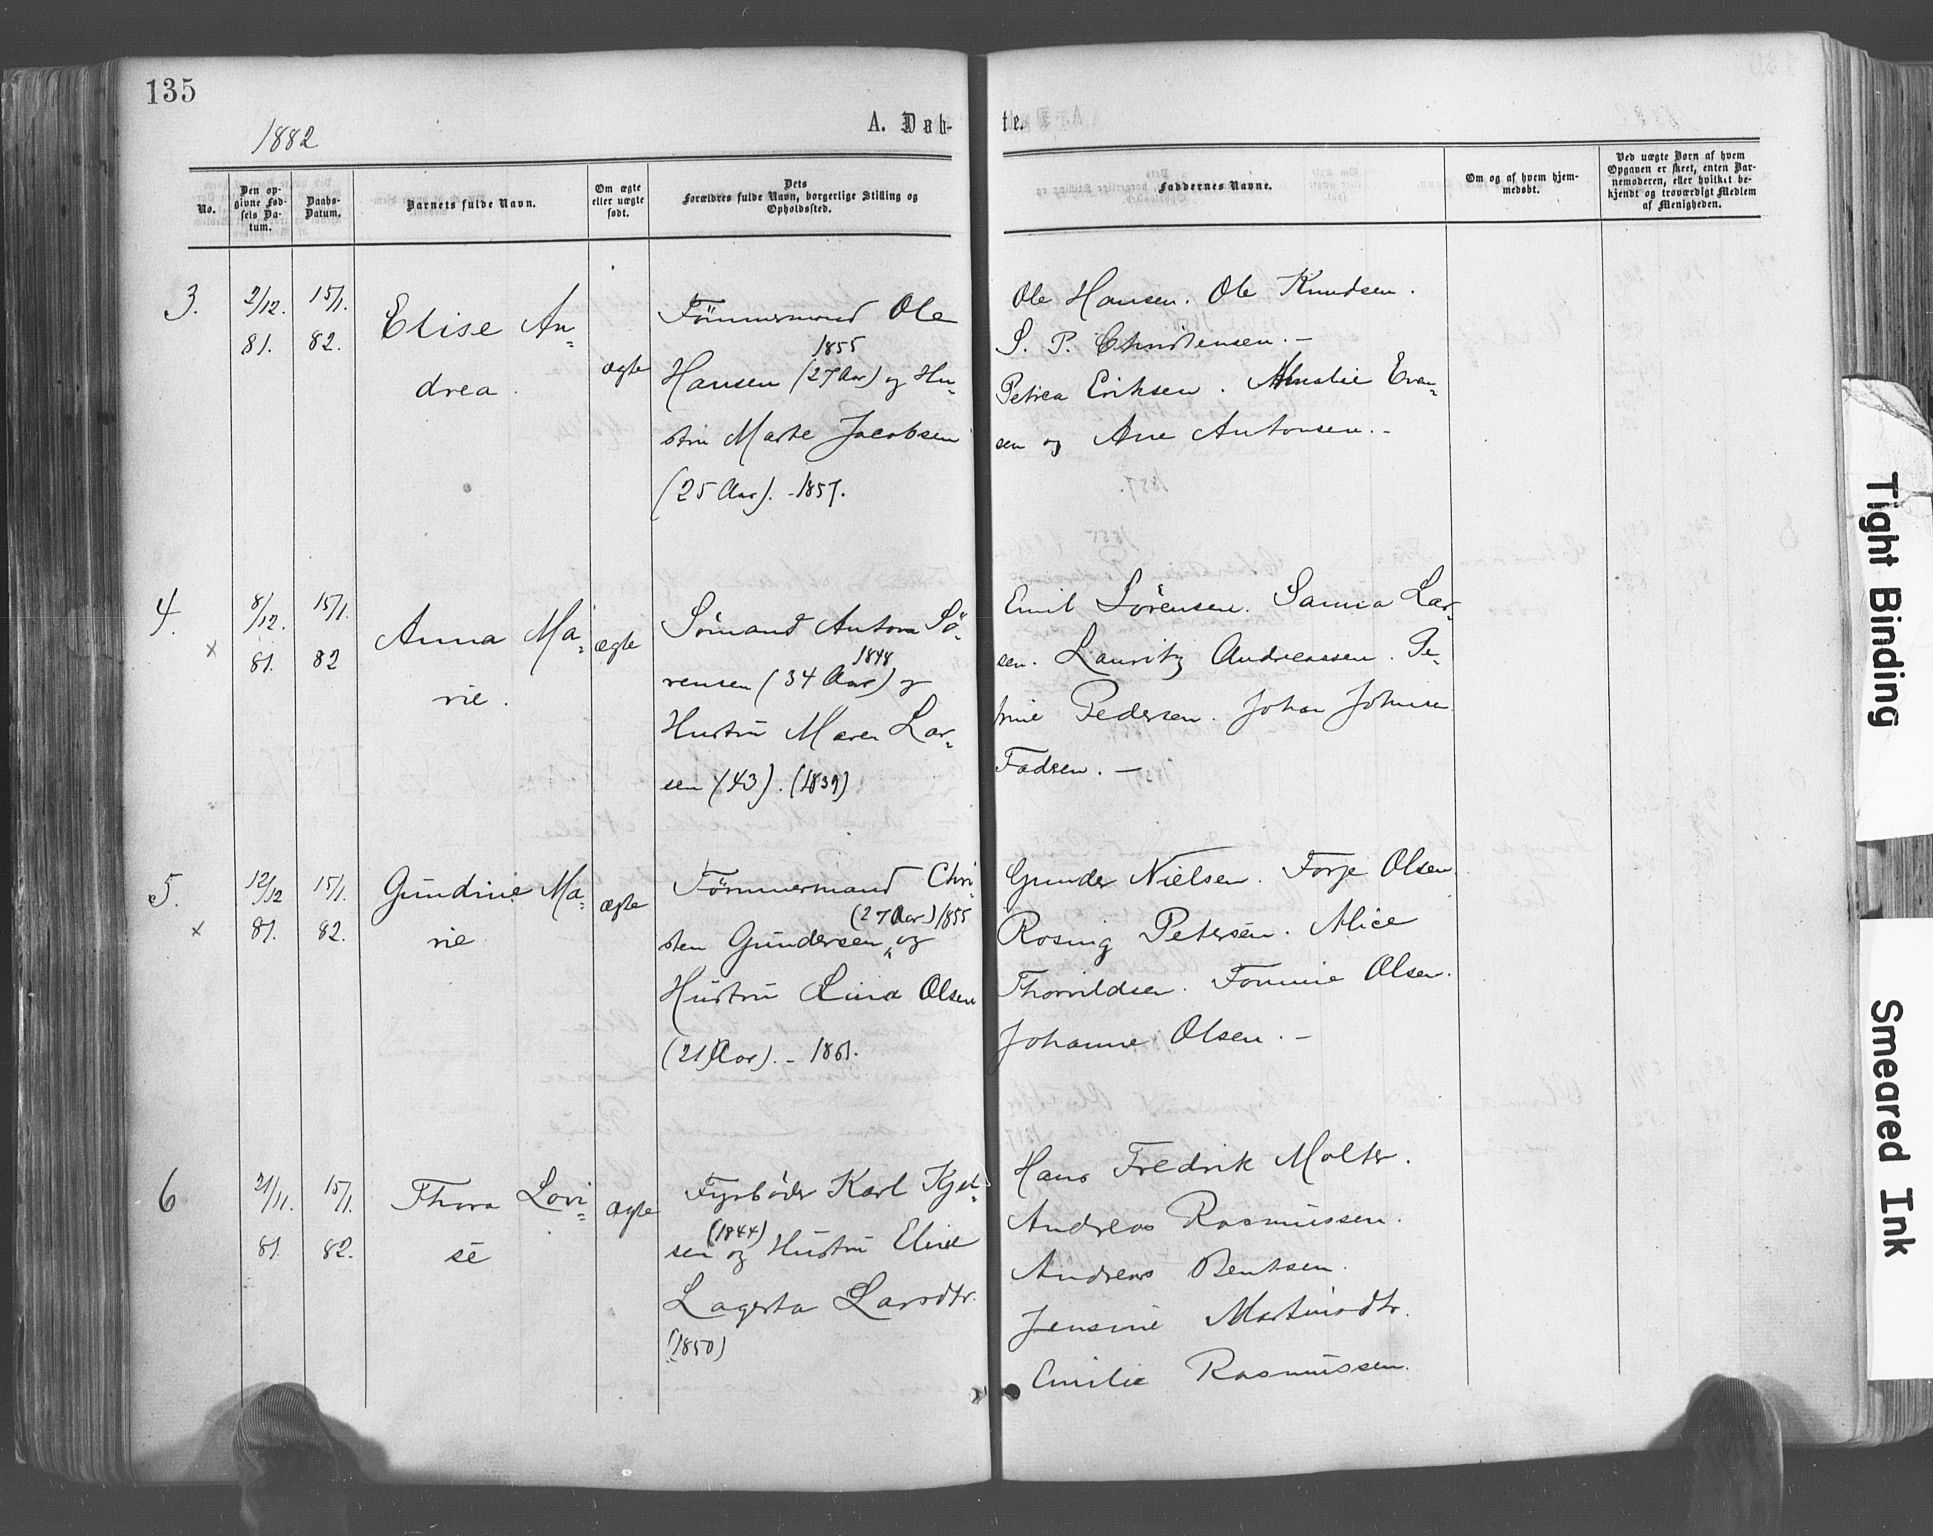 135
1882
A. Døb-
te.
No.
Den op-
givne Fød-
sels Da-
tum.
Daabs-
Datum.
Barnets fulde Navn.
Om ægte
eller uægte
født.
Dets
Forældres fulde Navn, borgerlige Stilling og
Opholdssted.
Faddernes Navne.
Om og af hvem hjem-
medøbt.
Ved uægte Børn af hvem
Opgaven er skeet, enten Bar-
nemoderen, eller hvilket be-
kjendt og troværdigt Medlem
af Menigheden.
3.
2/12.
81.
15/1.
82.
Elise An=
drea.
ægte
Tömmermand Ole
1855
Hansen (27 Aar) og Hu=
stru Marte Jacobsen
(25 Aar). - 1857.
Ole Hansen. Ole Knudsen.
S. P. Christensen. -
Petrea Eriksen. Amalie Evan=
sen og Ane Antonsen. -
4.
x
8/12.
81.
15/1.
82
Anna Ma=
rie.
ægte
Sömand Anton Sö=
1848
rensen (34 Aar) og
Hustru Maren Lar=
sen (43). (1839)
Emil Sörensen. Sanna Lar=
sen. Lauritz Andreassen. Pe=
trine Pedersen. Johan Johnsen
Fadsen. -
5.
x
12/12
81.
15/1.
82.
Gundine Ma=
rie
ægte
Tömmermand Chri=
(27 Aar) 1855
sten Gundersen „ og
Hustru Lina Olsen
(21 Aar). - 1861.
Gunder Nielsen. Torje Olsen.
Rosing Petersen. Alice
Thorvildsen. Tomine Olsen.
Johanne Olsen. -
6
21/11.
81.
15/1.
82.
Thora Lovi=
se
ægte
Fyrböder Karl Kjel=
(1844)
sen og Hustru Eline
Lagerta Larsdtr.
(1850)
Hans Fredrik Molter.
Andreas Rasmussen.
Andreas Bentsen.
Jensine Martinsdtr.
Emilie Rasmussen.
Tight Binding
Smeared Ink